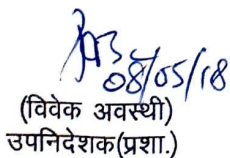 08/05/18
(विवेक अवस्थी)
उपनिदेशक(प्रशा.)